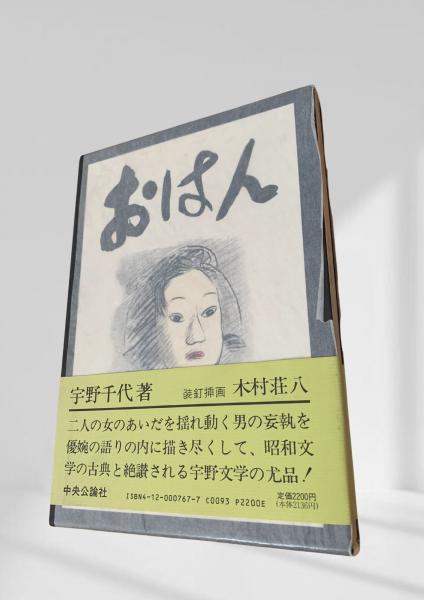 おはん
宇野千代著 装釘挿画 木村荘八
二人の女のあいだを揺れ動く男の妄執を
優婉の語りの内に描き尽くして、昭和文
学の古典と絶讃される宇野文学の尤品！
中央公論社 ISBN4-12-000767-7 C0093 P2200E 定価2200円
(本体2136円)